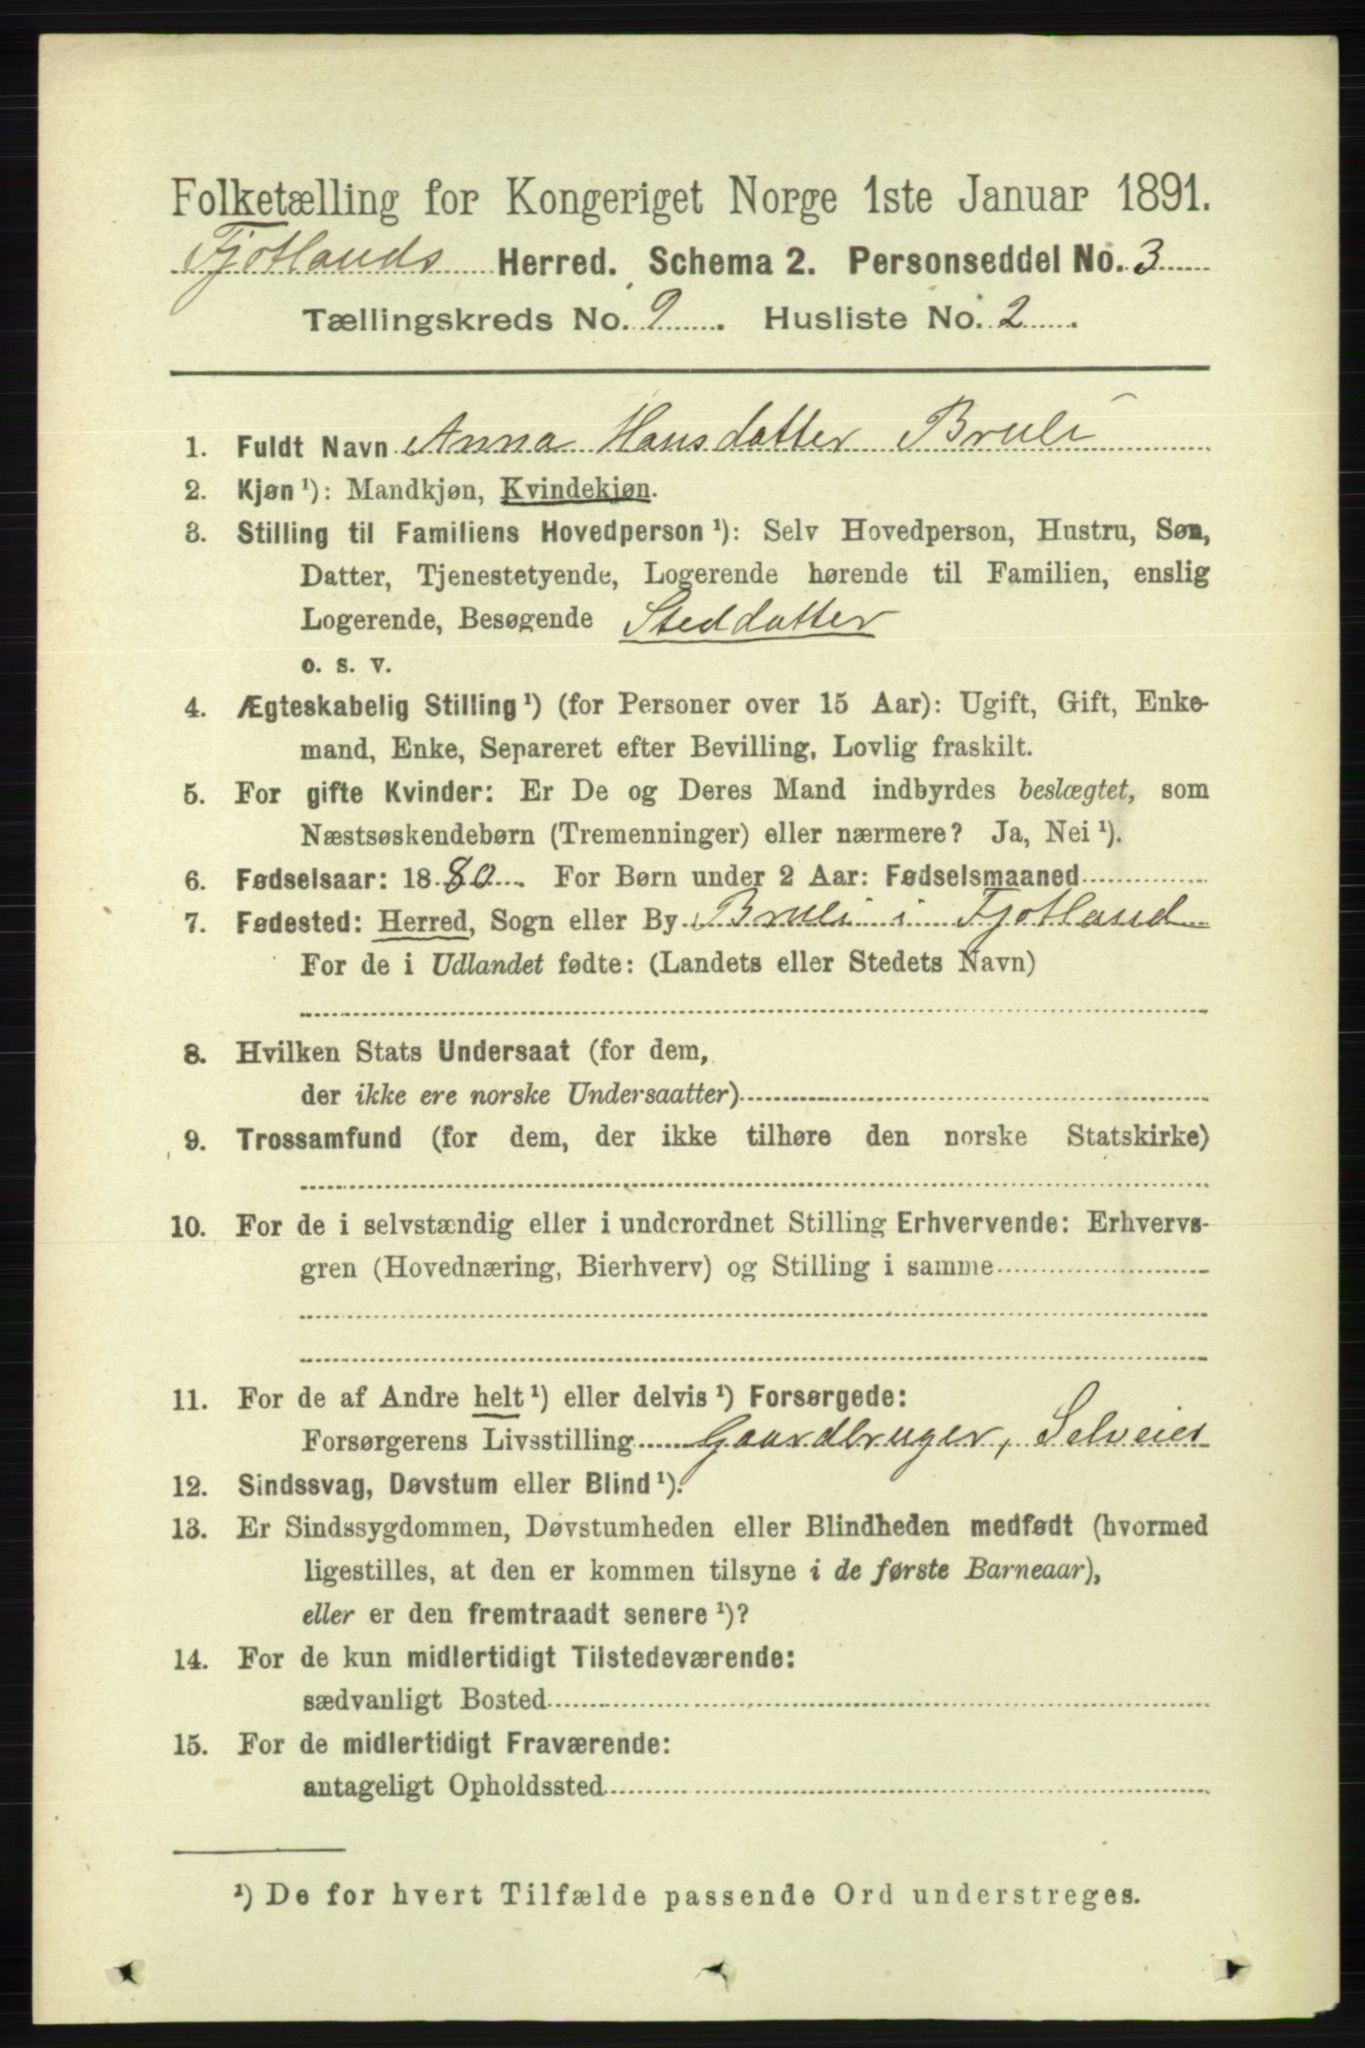 Folketælling for Kongeriget Norge 1ste Januar 1891.
Fjotlands Herred. Schema 2. Personseddel No. 3
Tællingskreds No. 9. Husliste No. 2.
1. Fuldt Navn Anna Hansdatter Bruli
2. Kjøn ¹): Mandkjøn, Kvindekjøn.
3. Stilling til Familiens Hovedperson ¹): Selv Hovedperson, Hustru, Søn,
Datter, Tjenestetyende, Logerende hørende til Familien, enslig
Logerende, Besøgende Steddatter
o. s. v.
4. Ægteskabelig Stilling ¹) (for Personer over 15 Aar): Ugift, Gift, Enke-
mand, Enke, Separeret efter Bevilling, Lovlig fraskilt.
5. For gifte Kvinder: Er De og Deres Mand indbyrdes beslægtet, som
Næstsøskendebørn (Tremenninger) eller nærmere? Ja, Nei ¹).
6. Fødselsaar: 1880. For Børn under 2 Aar: Fødselsmaaned
7. Fødested: Herred, Sogn eller By Bruli i Fjotland
For de i Udlandet fødte: (Landets eller Stedets Navn)
8. Hvilken Stats Undersaat (for dem,
der ikke ere norske Undersaatter)
9. Trossamfund (for dem, der ikke tilhøre den norske Statskirke)
10. For de i selvstændig eller i underordnet Stilling Erhvervende: Erhvervs-
gren (Hovednæring, Bierhverv) og Stilling i samme
11. For de af Andre helt ¹) eller delvis ¹) Forsørgede:
Forsørgerens Livsstilling Gaardbruger, Selveier
12. Sindssvag, Døvstum eller Blind ¹).
13. Er Sindssygdommen, Døvstumheden eller Blindheden medfødt (hvormed
ligestilles, at den er kommen tilsyne i de første Barneaar),
eller er den fremtraadt senere ¹)?
14. For de kun midlertidigt Tilstedeværende:
sædvanligt Bosted
15. For de midlertidigt Fraværende:
antageligt Opholdssted
¹) De for hvert Tilfælde passende Ord understreges.